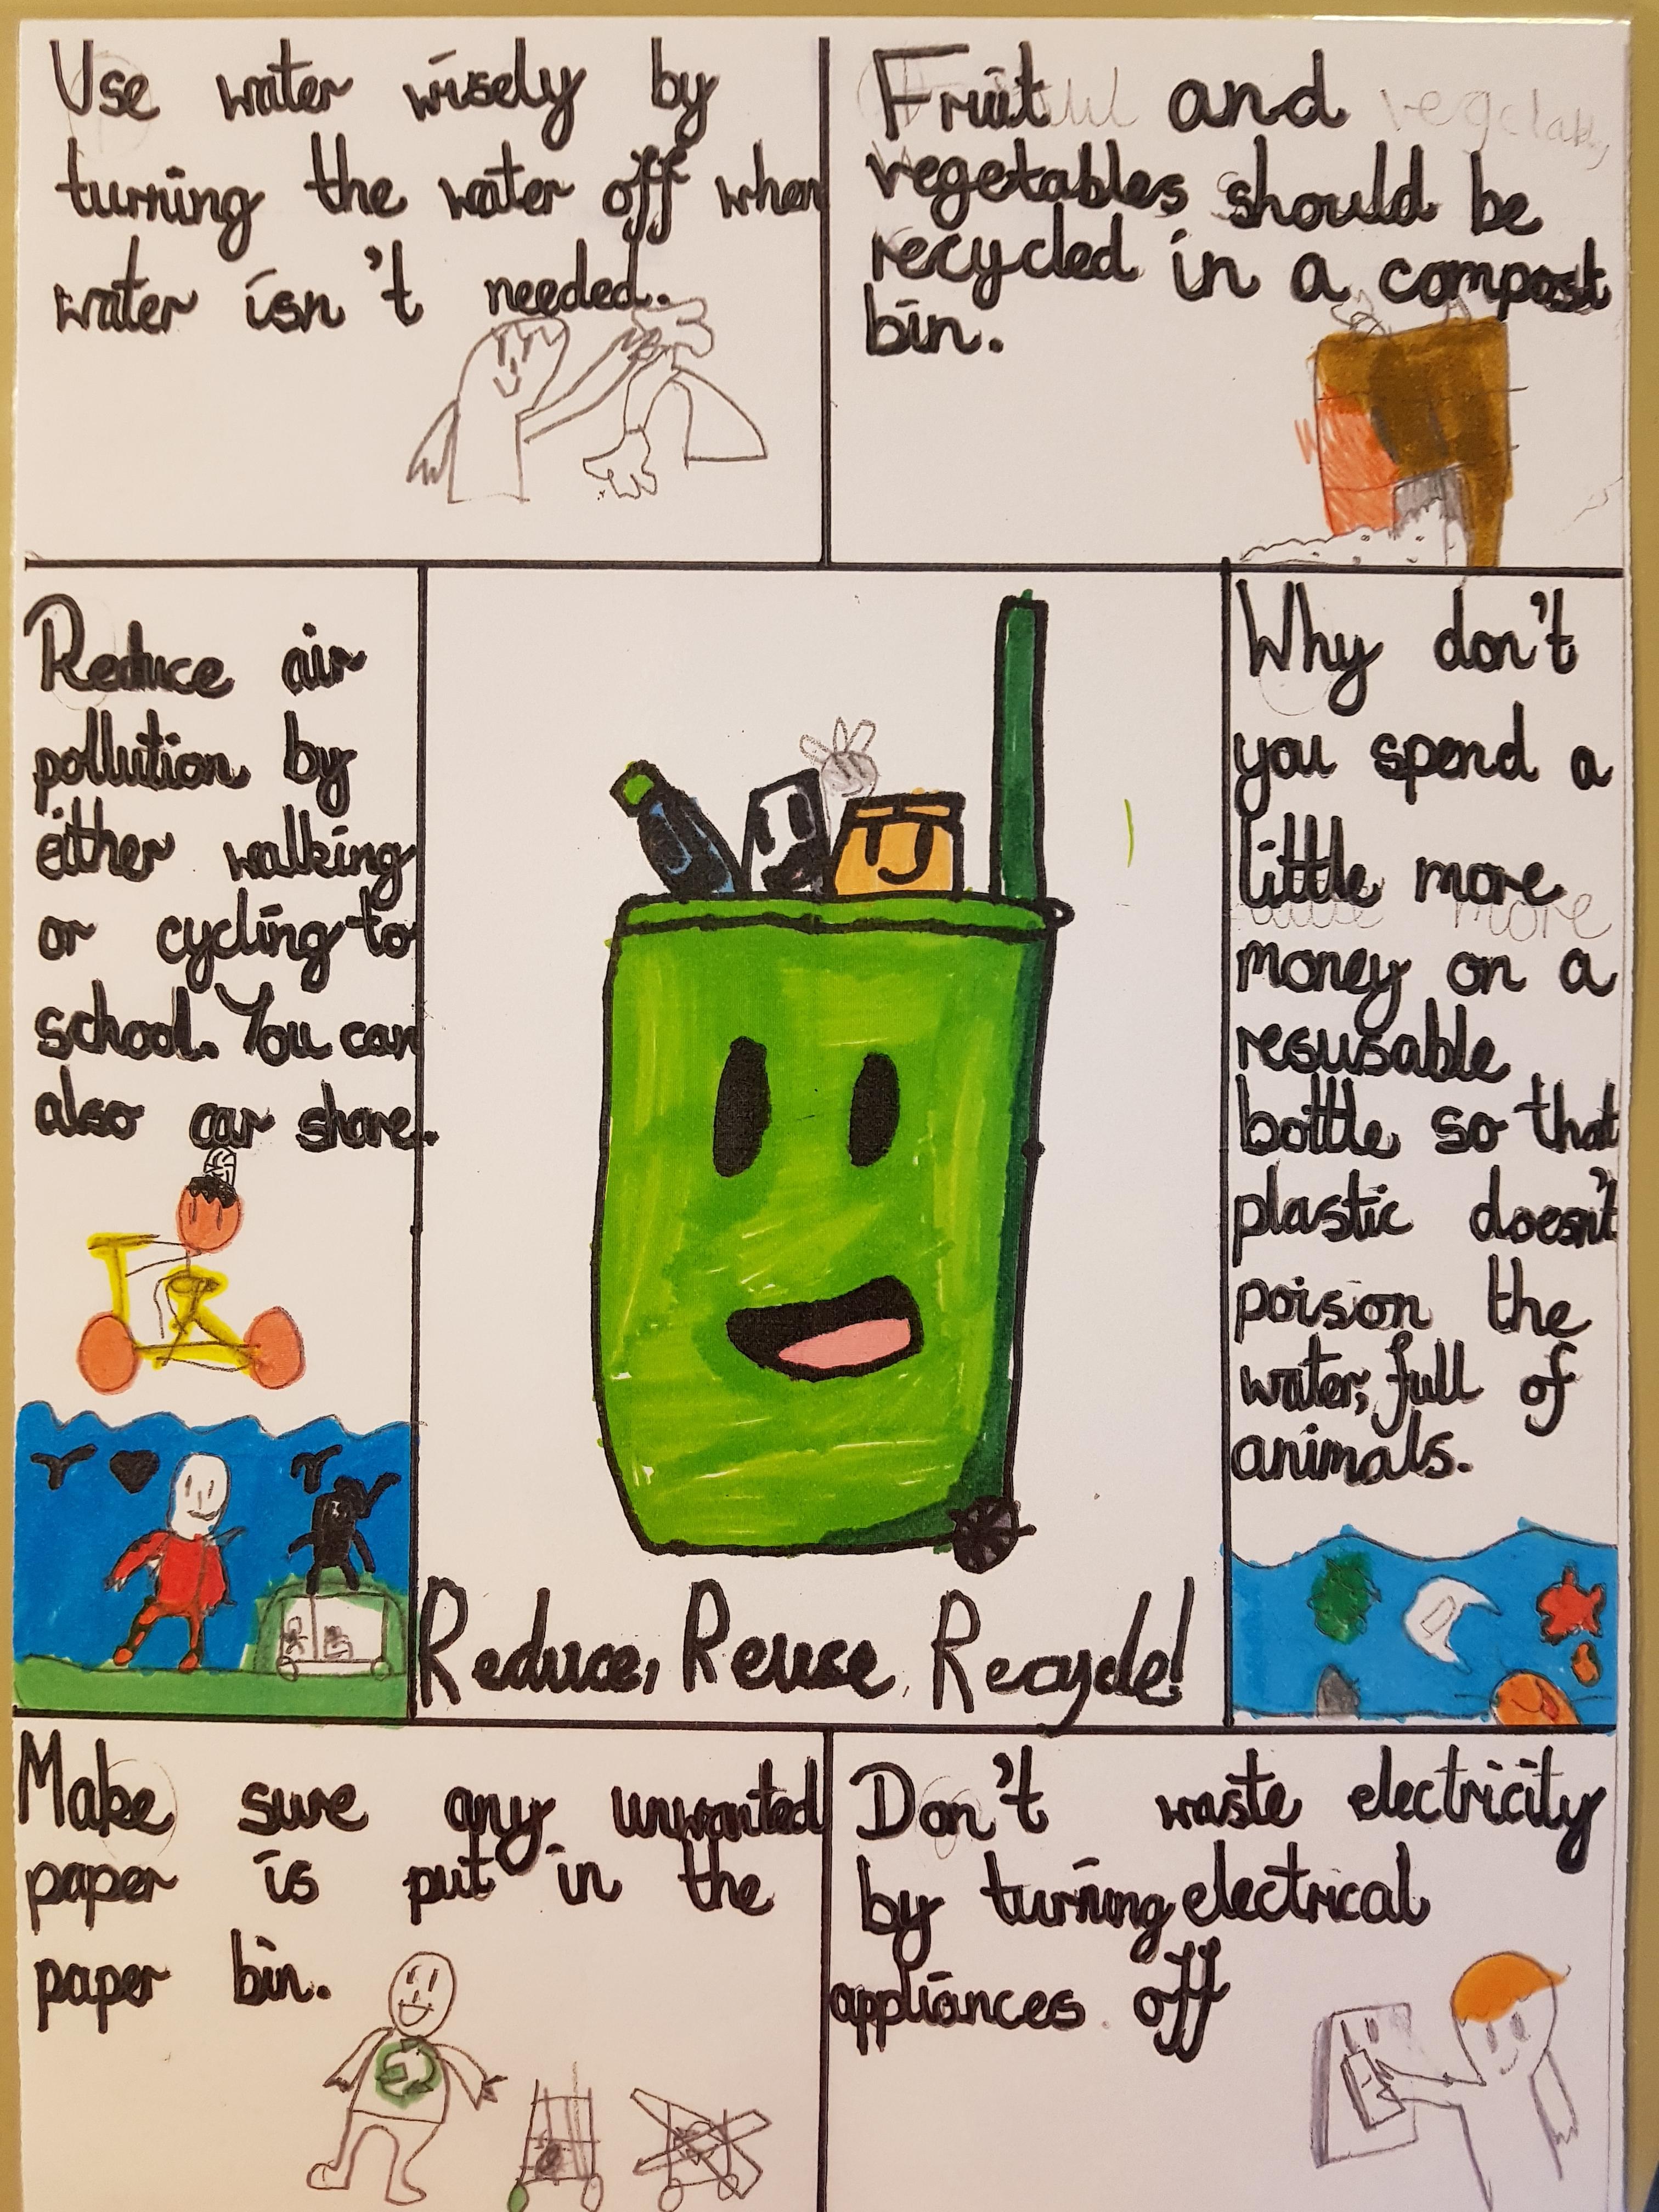 Use water wisely by
turning the water off when
water isn't needed.
Fruit and
vegetables should be
recycled in a compost
bin.
Reduce air
pollution by
either walking
or cycling to
school. You can
also car share.
Why don't
you spend a
little more
money on a
resusable
bottle so that
plastic doesn't
poison the
water, full of
animals.
Reduce, Reuse, Recycle!
Make sure any unwanted
paper is put in the
paper bin.
Don't waste electricity
by turning electrical
appliances off